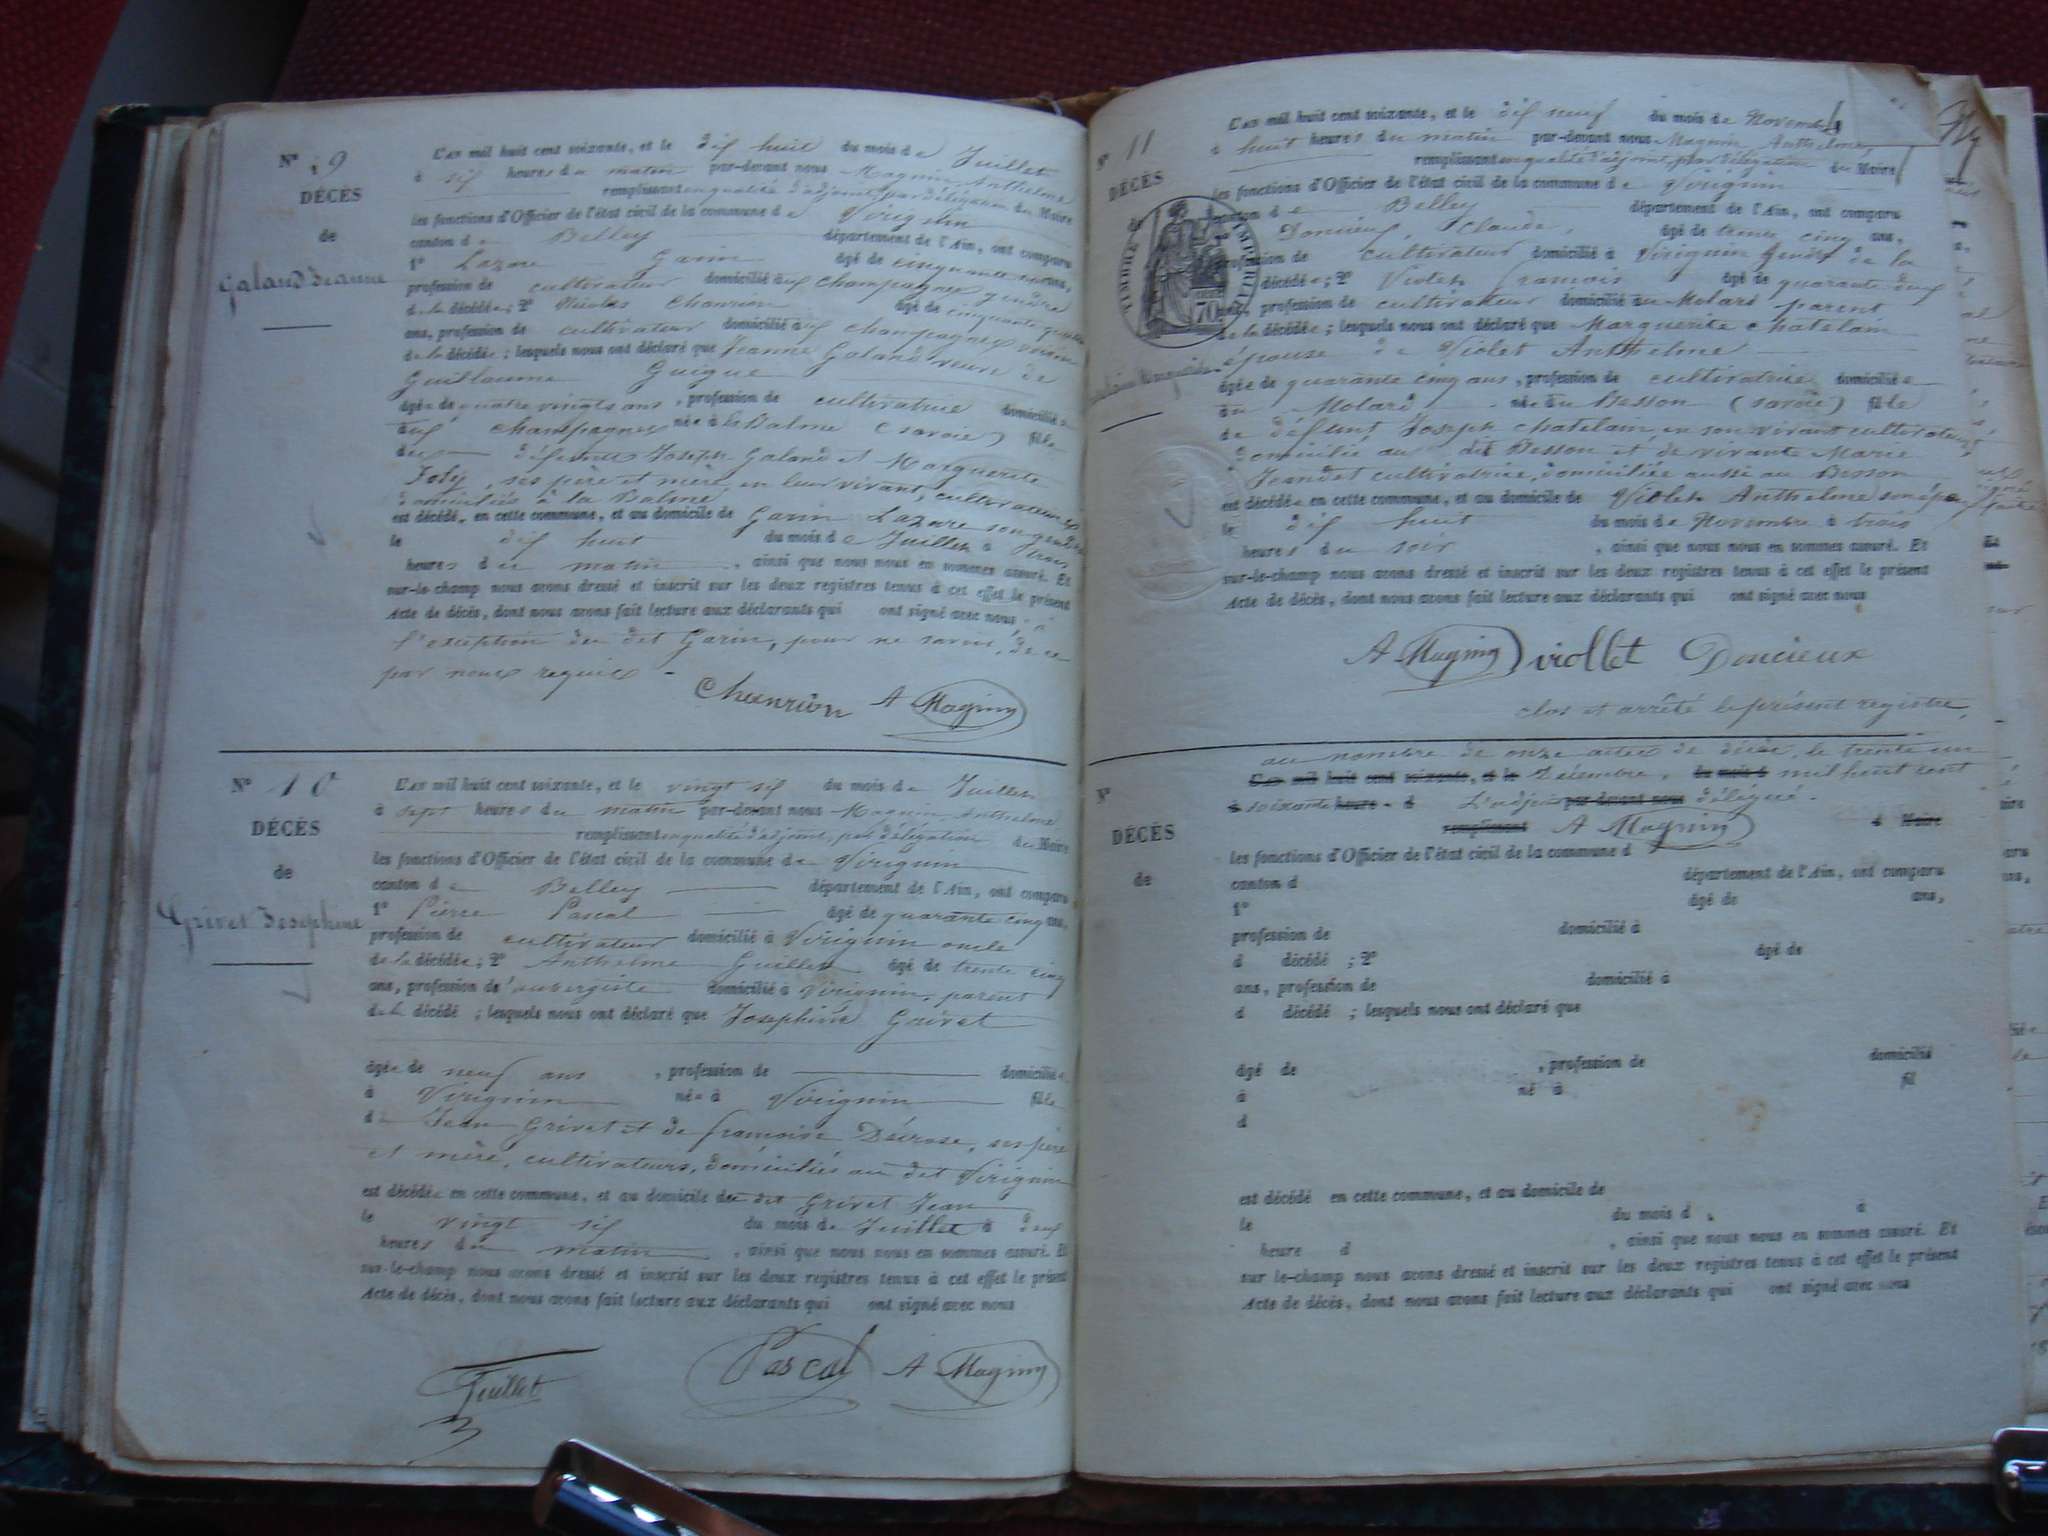 N° 9
DÉCÈS
de
Galand Jeanne
L'an mil huit cent soixante, et le dix huit du mois de Juillet
à six heures du matin par-devant nous Magnin Anthelme
remplissant en qualité d'adjoint, par délégation du Maire
les fonctions d'Officier de l'état civil de la commune de Virignin
canton de Belley département de l'Ain, ont comparu
1° Lazare Garin âgé de cinquante ans,
profession de cultivateur domicilié aux Champagnes gendre
de la décédée; 2° Nicolas Chanrion âgé de cinquante quatre
ans, profession de cultivateur domicilié aux Champagnes voisin
de la décédée; lesquels nous ont déclaré que Jeanne Galand veuve de
Guillaume Guigue
âgée de quatre vingts ans, profession de cultivatrice domiciliée
aux Champagnes née à la Balme (savoie) fille
de défunts Joseph Galand et Marguerite
Joly, ses père et mère, en leur vivant, cultivateurs
domiciliés à la Balme
est décédée en cette commune, et au domicile de Garin Lazare son gendre
le dix huit du mois de Juillet à trois
heures du matin, ainsi que nous nous en sommes assuré. Et
sur-le-champ nous avons dressé et inscrit sur les deux registres tenus à cet effet le présent
Acte de décès, dont nous avons fait lecture aux déclarants qui ont signé avec nous, à
l'exception du dit Garin, pour ne savoir, de ce
par nous requis -
Chanrion A Magnin
N° 10
DÉCÈS
de
Grivet Josephine
L'an mil huit cent soixante, et le vingt six du mois de Juillet
à sept heures du matin par-devant nous Magnin Anthelme
remplissant en qualité d'adjoint, par délégation du Maire
les fonctions d'Officier de l'état civil de la commune de Virignin
canton de Belley département de l'Ain, ont comparu
1° Pierre Pascal âgé de quarante cinq ans,
profession de cultivateur domicilié à Virignin oncle
de la décédée; 2° Anthelme Guillet âgé de trente cinq
ans, profession de aubergiste domicilié à Virignin, parent
de la décédé; lesquels nous ont déclaré que Josephine Grivet
âgée de neuf ans, profession de domiciliée
à Virignin née à Virignin fille
de Jean Grivet et de françoise Désrose, ses père
et mère, cultivateurs, domiciliés au dit Virignin
est décédée en cette commune, et au domicile du dit Grivet Jean
le vingt six du mois de Juillet à deux
heures du matin, ainsi que nous nous en sommes assuré. Et
sur-le-champ nous avons dressé et inscrit sur les deux registres tenus à cet effet le présent
Acte de décès, dont nous avons fait lecture aux déclarants qui ont signé avec nous
Pascal A Magnin
N° 11
DÉCÈS
de
L'an mil huit cent soixante, et le dix neuf du mois de Novembre
à huit heures du matin par-devant nous Magnin Anthelme,
remplissant en qualité d'adjoint, par délégation du Maire
les fonctions d'Officier de l'état civil de la commune de Virignin
canton de Belley département de l'Ain, ont comparu
Doncieux, Claude, âgé de trente cinq ans,
profession de cultivateur domicilié à Virignin gendre de la
décédée; 2° Violet francois âgé de quarante deux
ans, profession de cultivateur domicilié au Molard parent
de la décédée; lesquels nous ont déclaré que Marguerite Chatelain
épouse de Violet Anthelme
âgée de quarante cinq ans, profession de cultivatrice domiciliée
au Molard née au Besson (savoie) fille
de défunt Joseph Chatelain, en son vivant cultivateur,
domicilié au dit Besson et de vivante Marie
Jeandet cultivatrice, domiciliée aussi au Besson
est décédée en cette commune, et au domicile de Violet Anthelme son époux
le dix huit du mois de Novembre à trois
heures du soir, ainsi que nous nous en sommes assuré. Et
sur-le-champ nous avons dressé et inscrit sur les deux registres tenus à cet effet le présent
Acte de décès, dont nous avons fait lecture aux déclarants qui ont signé avec nous
A Magnin viollet Doncieux
clos et arrêté le présent registre,
au nombre de onze actes de décès, le trente un
L'an mil huit cent soixante, et le Décembre, du mois d mil huit cent
à soixante heure d L'adjoint par-devant nous délégué.
remplissant A Magnin d Maire
N°
DÉCÈS
de
les fonctions d'Officier de l'état civil de la commune d
canton d département de l'Ain, ont comparu
1° âgé de ans,
profession de domicilié à
d décédé ; 2° âgé de
ans, profession de domicilié à
d décédé ; lesquels nous ont déclaré que
âgé de , profession de domicilié
à né à fil
d
est décédé en cette commune, et au domicile de
le du mois d à
heure d , ainsi que nous nous en sommes assuré. Et
sur le-champ nous avons dressé et inscrit sur les deux registres tenus à cet effet le présent
Acte de décès, dont nous avons fait lecture aux déclarants qui ont signé avec nous